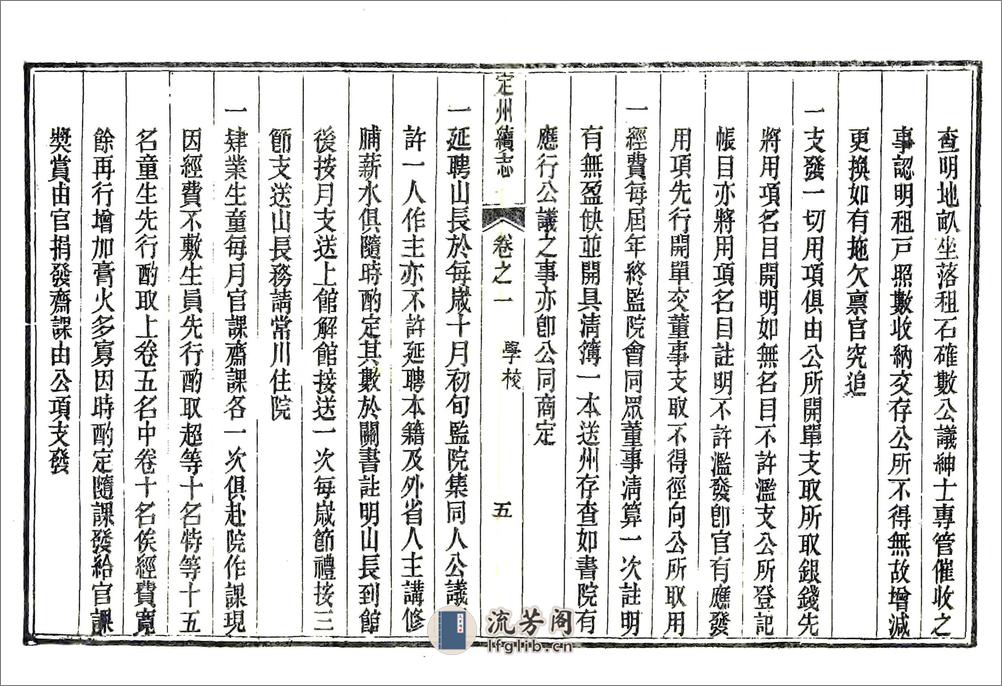 查明地畝坐落租石確數公議紳士專管催收之
事認明租戸照數收納交存公所不得無故增減
更換如有拖欠禀官究追
一支發一切用項俱由公所開單支取所取銀錢先
將用項名目開明如無名目不許濫支公所登記
帳目亦將用項名目註明不許濫發卽官有應發
用項先行開單交董事支取不得徑向公所取用
一經費每屆年終監院會同眾董事淸算一次註明
有無盈缺並開具淸簿一本送州存查如書院有
應行公議之事亦卽公同商定
定州續志 卷之一 學校 五
一延聘山長於每歲十月初旬監院集同人公議不
許一人作主亦不許延聘本籍及外省人主講修
脯薪水俱隨時酌定其數於關書註明山長到館
後按月支送上館解館接送一次每歲節禮按三
節支送山長務請常川住院
一肄業生童每月官課齋課各一次俱赴院作課現
因經費不敷生員先行酌取超等十名特等十五
名童生先行酌取上卷五名中卷十名俟經費寬
餘再行增加膏火多寡因時酌定隨課發給官課
獎賞由官捐發齋課由公項支發
流芳閣
lfglib.cn